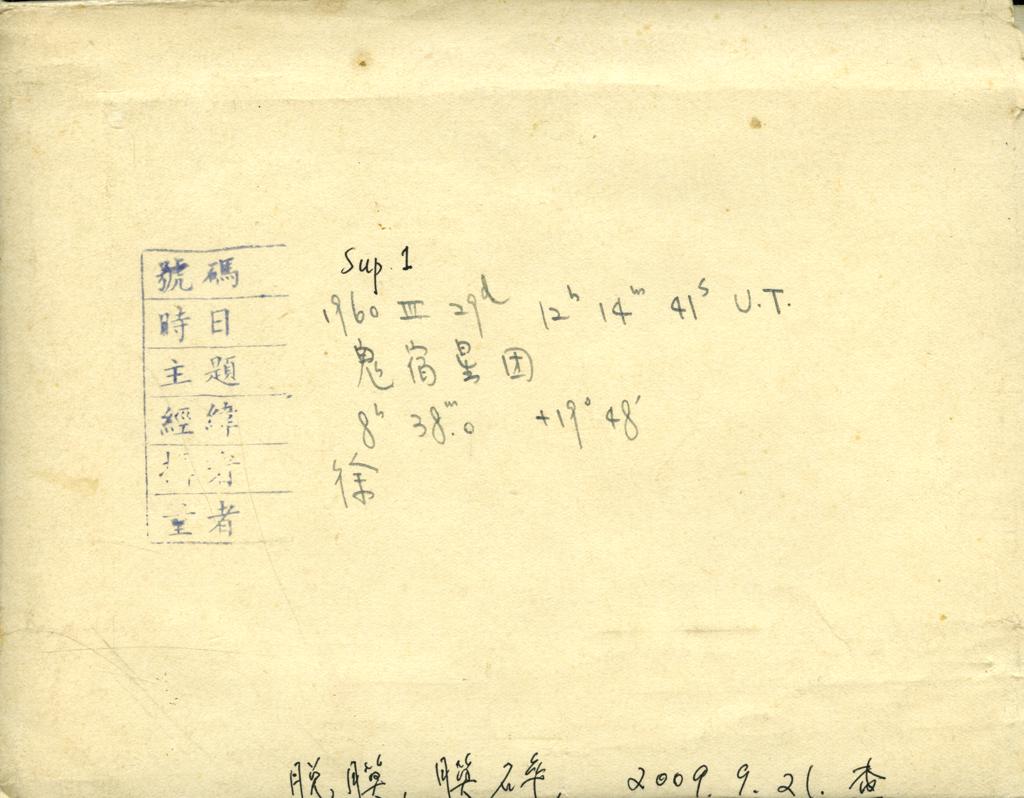 號碼 Sup. 1
時日 1960 III 29d 12h 14m 41s U.T.
主題 鬼宿星团
經緯 8h 38m.0 +19° 48'
者 徐
量者
脱膜, 膜碎, 2009. 9. 21. 查